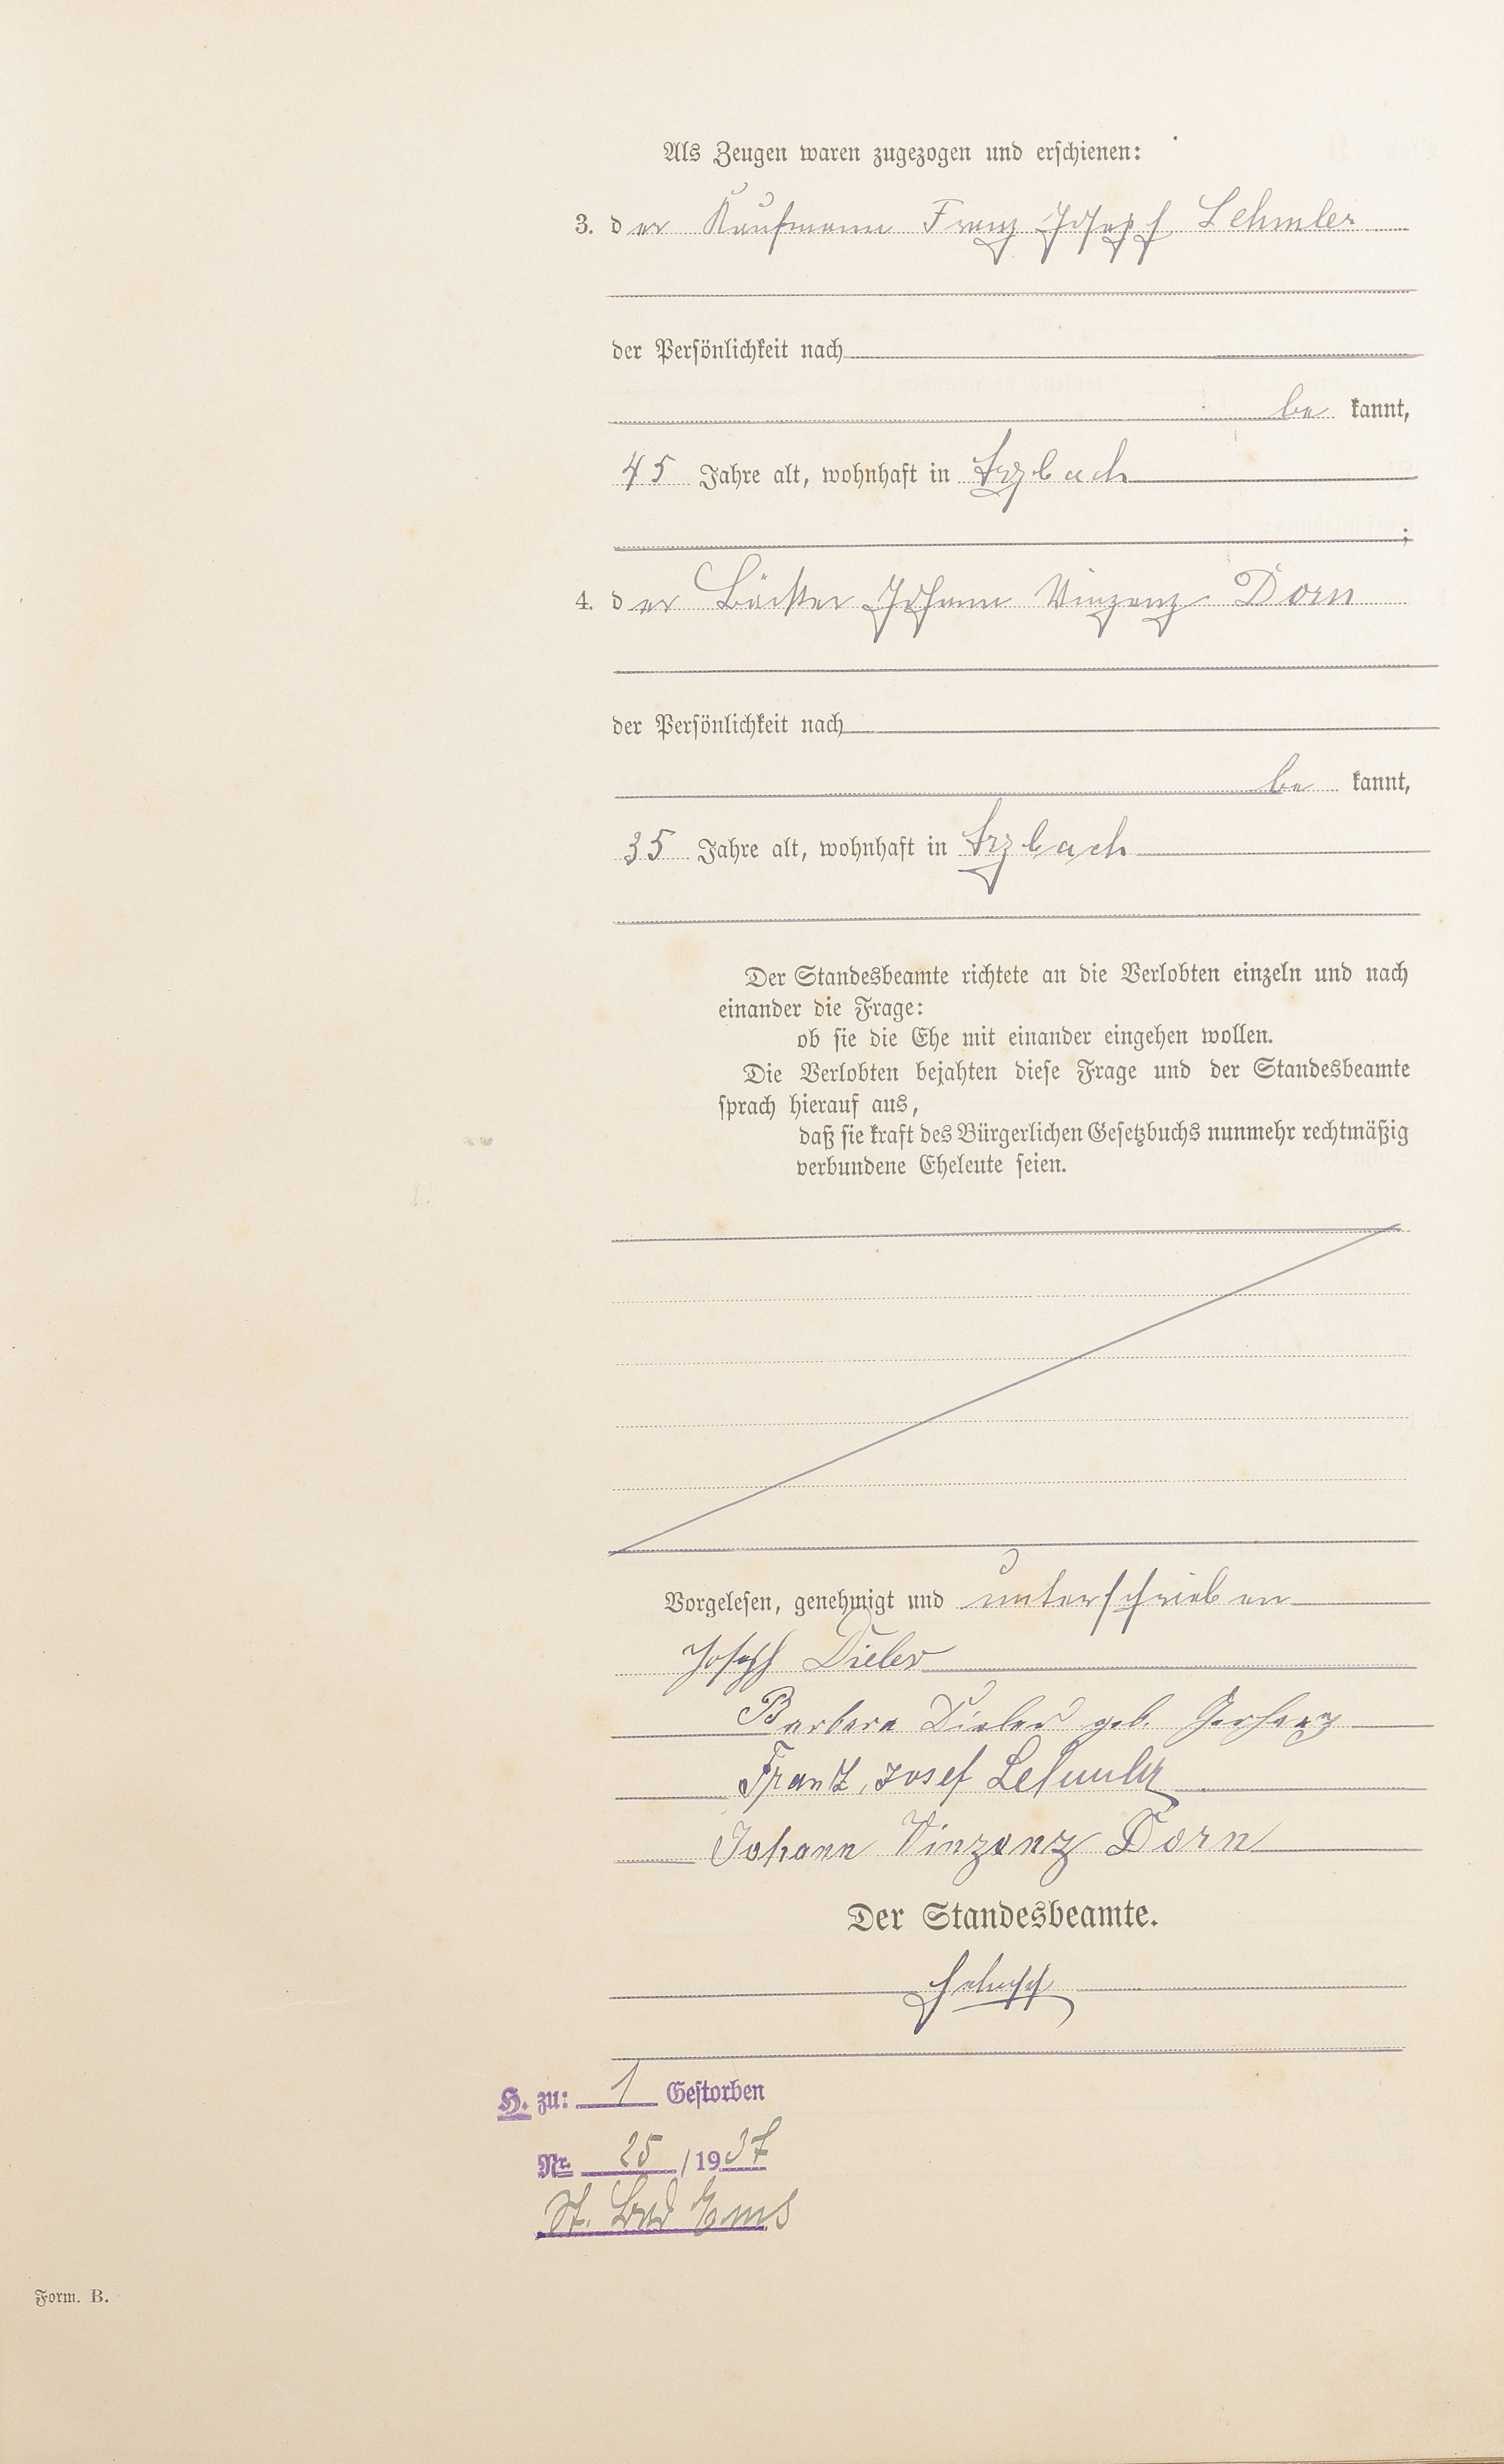 Als Zeugen waren zugezogen und erschienen:
3. der Kaufmann Franz Josepf Lehmler
der Persönlichkeit nach
be kannt,
45 Jahre alt, wohnhaft in Arzbach
;
4. der Bäcker Johann Vinzenz Dorn
der Persönlichkeit nach
be kannt,
35 Jahre alt, wohnhaft in Arzbach
Der Standesbeamte richtete an die Verlobten einzeln und nach
einander die Frage:
ob sie die Ehe mit einander eingehen wollen.
Die Verlobten bejahten diese Frage und der Standesbeamte
sprach hierauf aus,
daß sie kraft des Bürgerlichen Gesetzbuchs nunmehr rechtmäßig
verbundene Eheleute seien.
Vorgelesen, genehmigt und unterschrieben
Joseph Dieler
Barbara Dieler geb. Gerharz
Franz Josef Lehmler
Johann Vinzenz Dorn
Der Standesbeamte.
H. zu: 1 Gestorben
Nr. 25 /1937
St. Bad Ems
Form. B.